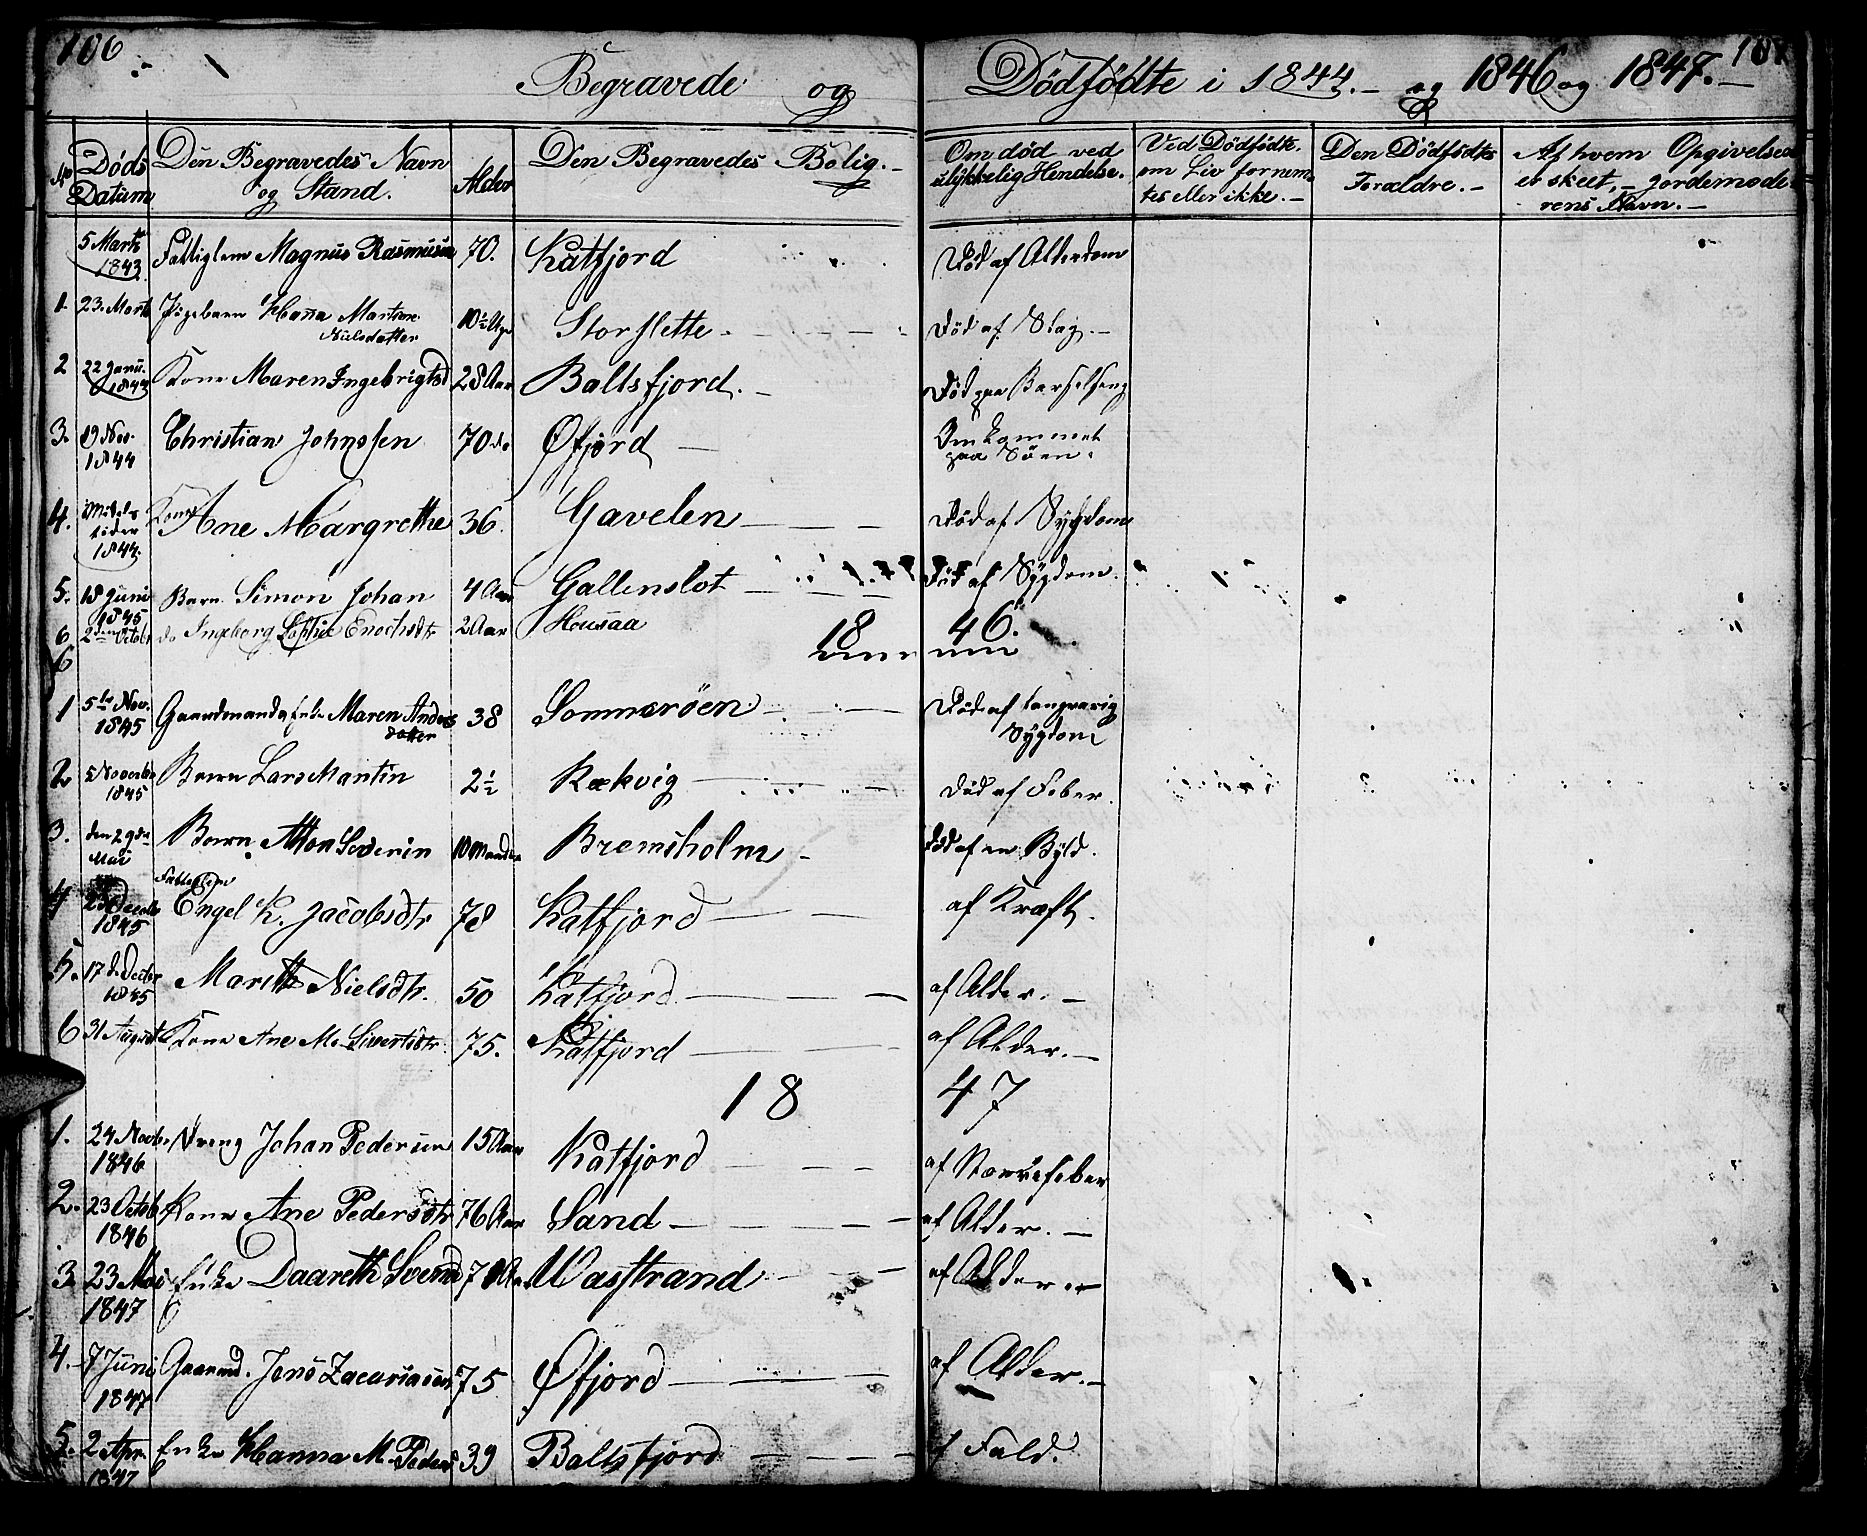 106
107
Begravede og Dödfödte i 1844. og 1846 og 1847.
No
Döds Datum
Den Begravedes Navn og Stand.
Alder
Den Begravedes Bolig.
Om död ved ulykkelig Hendelse.
Ved Dödfödte, om Liv fornemtes eller ikke.
Den Dödfödtes Forældre.
Af hvem Opgivelsen er skeet, Jordemoderens Navn.
5 Marts 1843 Fattiglem Magnus Rasmusen 70. Katfjord Död af Alderdom
1. 23. Marts Pigebarn Hana Martine Nielsdatter 10½ Uge Storslette Död af Slag.
2 22 Janu. 1844 Kone Maren Ingebrigtsd 28 Aar Baltsfjord. Död paa Barselseng
3. 19 Nov. 1844 Christian Johnssen 70 do Øfjord Omkommet paa Söen.
4. Mikelstider 1844. Kone Ane Margrethe 36. Gavelen Död af Sygdom
5. 18 Juni 1845 Barn Simon Johan 4 Aar Gallenslot Död af Sygdom.
6 2den Octobr do Ingeborg Sophie Enochsdtr 2 Aar Housaa
6
1846.
1 5te Nov. 1845 Gaardmands Enke Maren Anders datter 38 Sommeröen Död af langvarig Sygdom
2 5 November 1845 Barn Lars Martin 2½ Rekvig Död af Feber.
3. den 29de Mai Barn Severin 10 Maander Bremsholm Död af en Byld.
4 Decebr 1845 Engel K. Jacobsdtr 78 Katfjord af Kræft.
5. 17 de Decbr 1845 Marith Nielsdtr. 50 Katfjord af Alder.
6 31 August Kone Ane M. Sivertsdtr. 75. Katfjord af Alder.
1847
1. 24 Novbr 1846 Dreng Johan Pedersen 15 Aar Katfjord af Nervefeber
2. 23 Octob 1846 Kone Ane Pedersdtr 76 Aar Sand af Alder.
3 23 Mai 1847 Enke Daareth Svend Vasstrand af Alder
4. 7 Juni 1847 Gaarmd. Jens Zacariasen 75 Øfjord af Alder.
5. 2 Apr. 1847 Enke Hanna M. Peders 39 Baltsfjord af Fald.